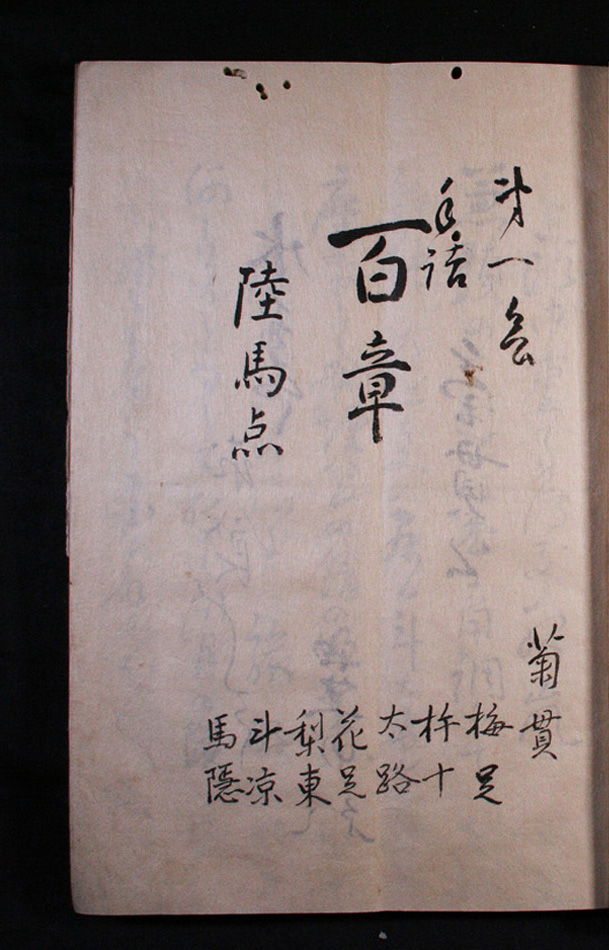 才一会
手話
百章
陸馬点
菊貫
梅足
杵十
太路
花足
梨東
斗凉
馬隠